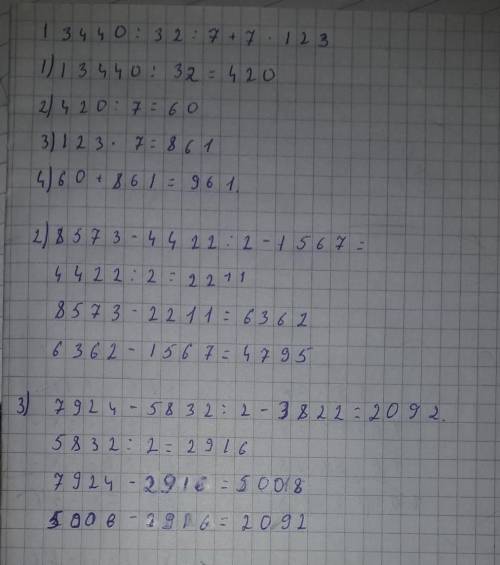 13440 : 32 : 7 + 7 · 123
1) 13440 : 32 = 420
2) 420 : 7 = 60
3) 123 · 7 = 861
4) 60 + 861 = 961.
2) 8573 - 4422 : 2 - 1567 =
4422 : 2 = 2211
8573 - 2211 = 6362
6362 - 1567 = 4795
3) 7924 - 5832 : 2 - 3822 = 2092.
5832 : 2 = 2916
7924 - 2916 = 5008
5008 - 2916 = 2092